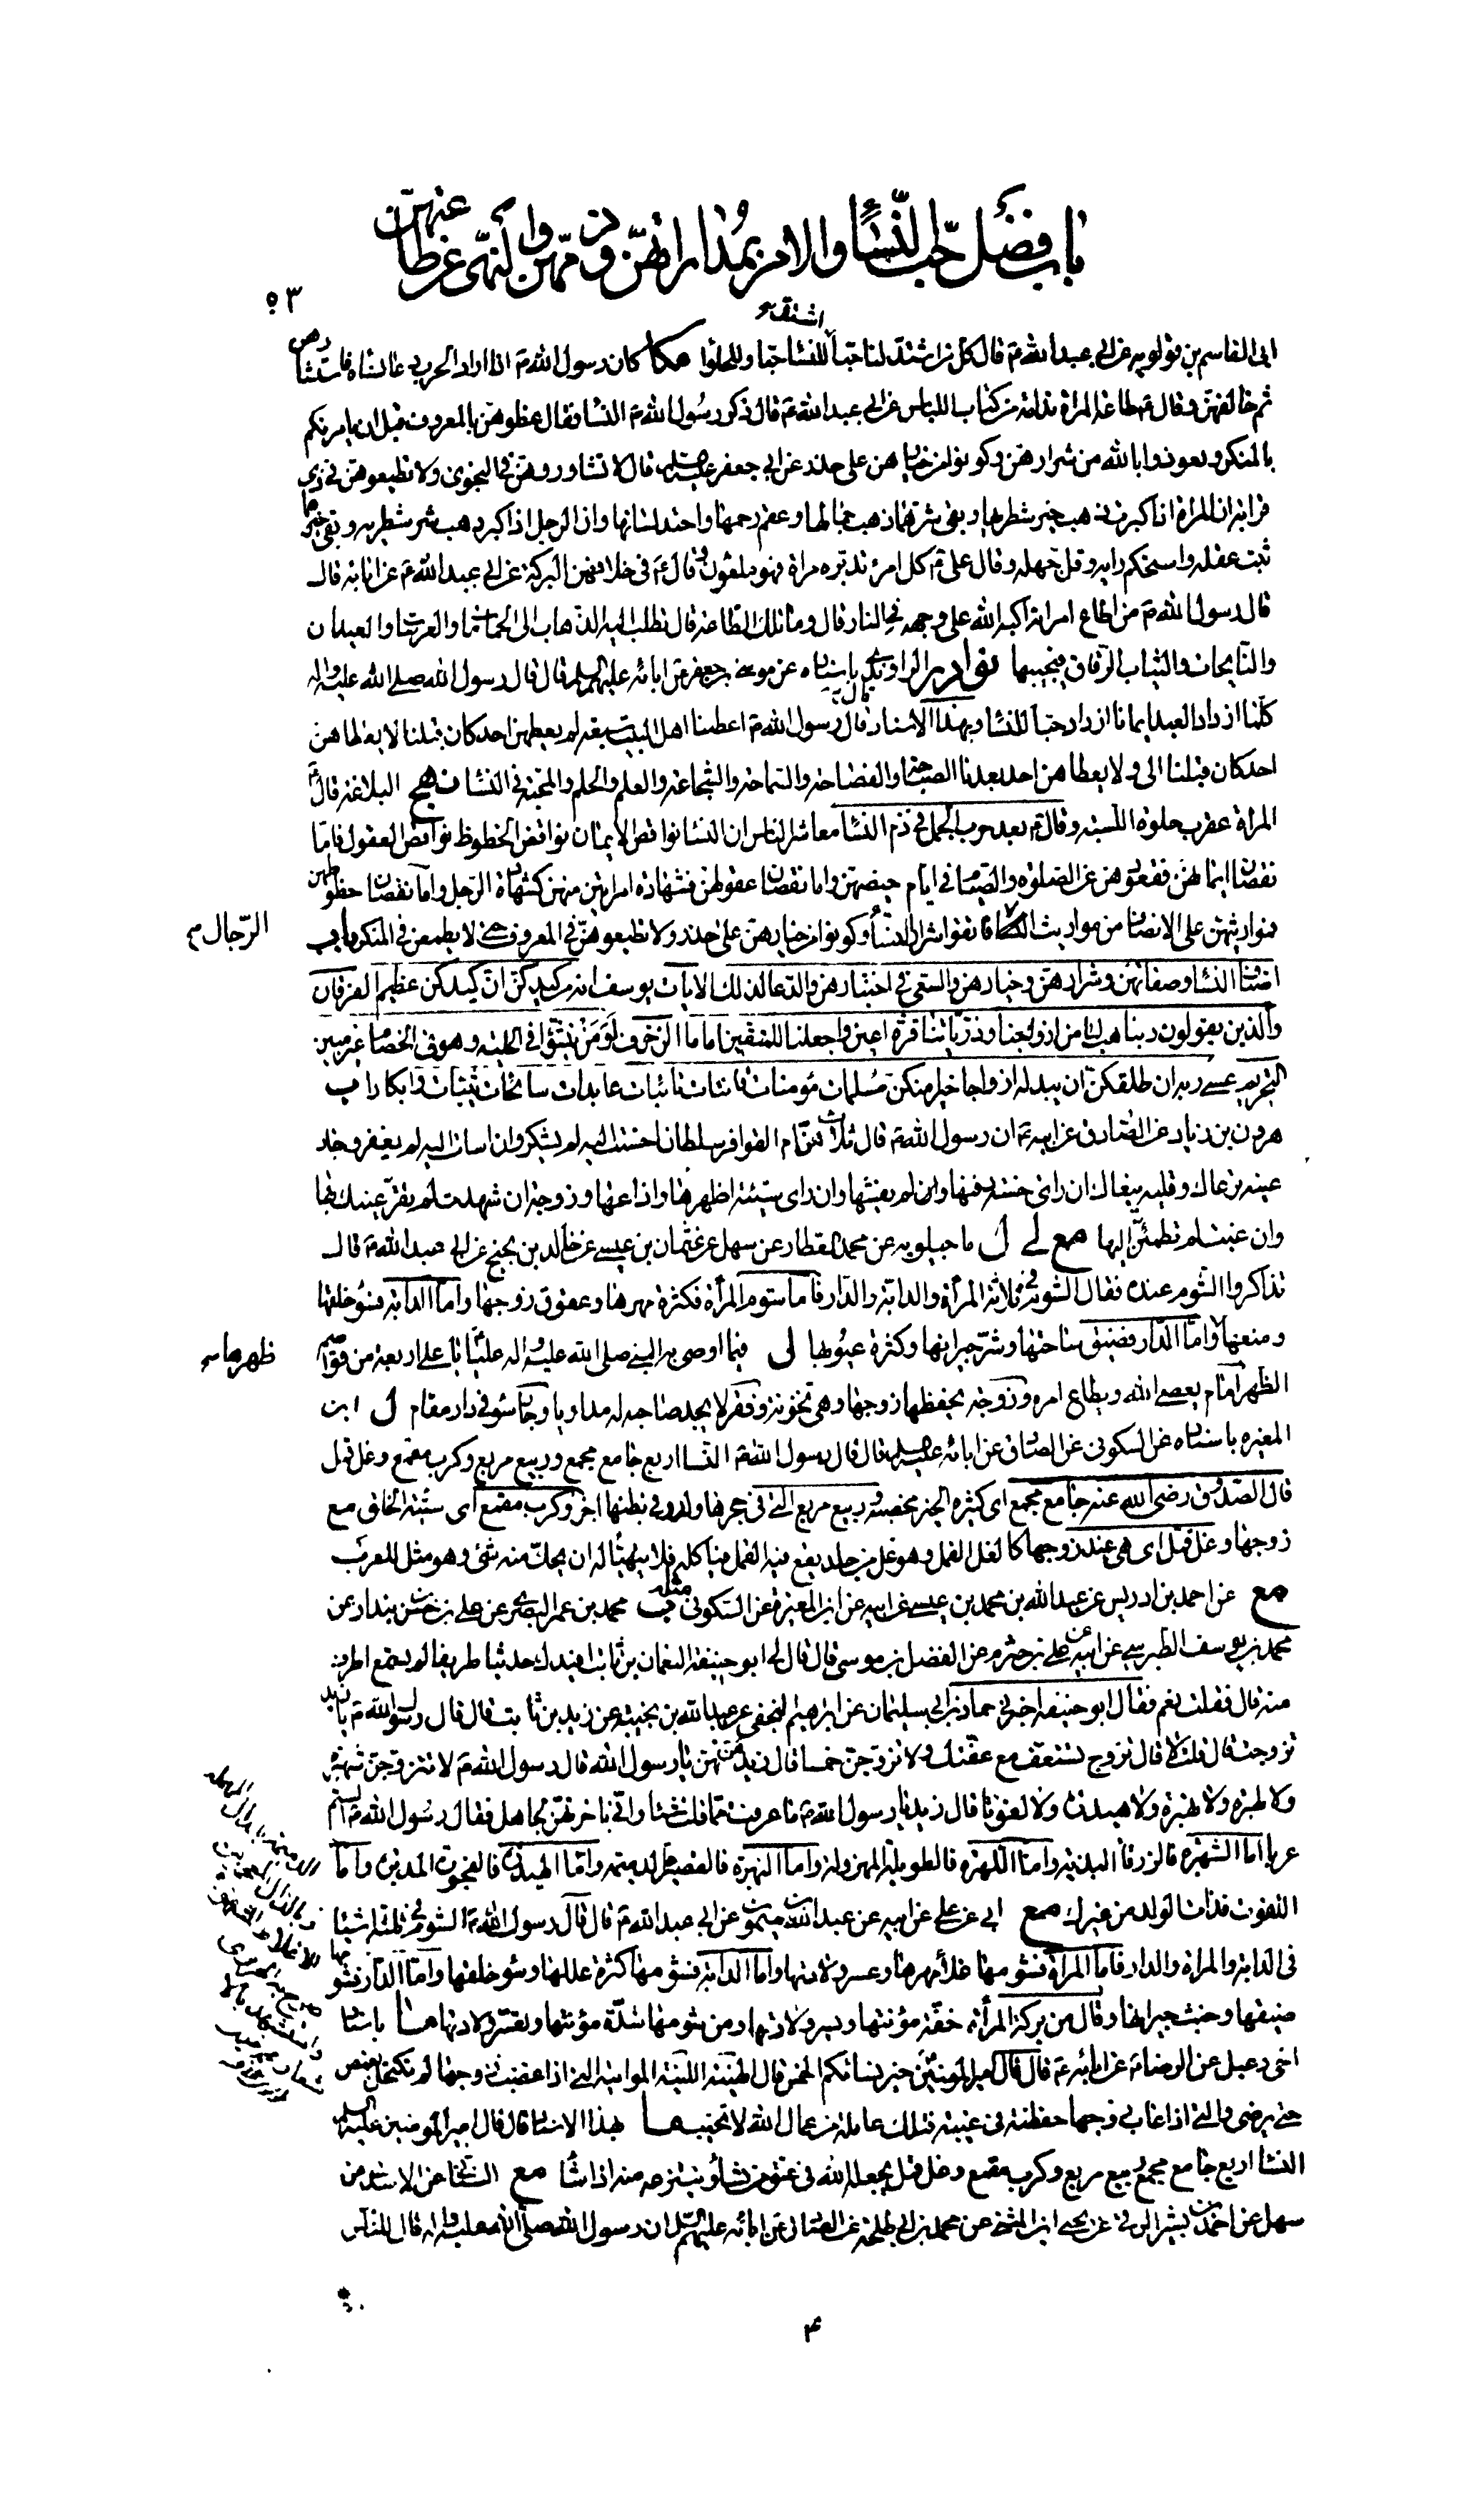 باب فضل حب النساء والامر بمداراتهن وذمهن والنهى عن طاعتهن
٥٣
ابى القاسم بن قولويه عن ابى عبدالله ع قال كل من اشتد لنا حبا اشتد للنساء حبا وللحلواء مكا كان رسول الله ص اذا اراد الحرب دعا نساءه فاستشارهن
ثم خالفهن وقال ع طاعة المراة ندامة من كتاب اللباس عن ابى عبدالله ع قال ذكر رسول الله ص النساء فقال عظوهن بالمعروف قبل ان يامرنكم
بالمنكر وتعوذوا بالله من شرارهن وكونوا من خيارهن على حذر عن ابى جعفر عليه السلم قال لا تشاوروهن فى النجوى ولا تطيعوهن فى ذى
قرابة ان المراة اذا كبرت ذهب خير شطريها وبقى شرهما ذهب جمالها وعقم رحمها واحتد لسانها وان الرجل اذا كبر ذهب شر شطريه وبقى خيرهما
ثبت عقله واستحكم رايه وقل جهله وقال على ع كل امرء تدبره مراة فهو ملعون وقال ع فى خلافهن البركة عن ابى عبدالله ع عن ابائه قال
قال رسول الله ص من اطاع امراته اكبه الله على وجهه فى النار قال وما تلك الطاعة قال تطلب اليه الذهاب الى الحمامات والعرسات والعيدان
والنايحات والثياب الرقاق فيجيبها نوادر الراوندى باسناده عن موسى بن جعفر عن ابائه عليهم السلم قال قال رسول الله صلى الله عليه واله
كلما ازداد العبد ايمانا ازداد حبا للنساء وبهذا الاسناد قال قال رسول الله ص اعطينا اهل البيت سبعة لم يعطهن احد كان قبلنا ولا يعطاهن
احد كان قبلنا الى ولا يعطاهن احد بعدنا الصباحة والفصاحة والسماحة والشجاعة والعلم والحلم والمحبة فى النساء نهج البلاغة قال ع
المراة عقرب حلوة اللسبة وقال ع بعد حرب الجمل فى ذم النساء معاشر الناس ان النساء نواقص الايمان نواقص الحظوظ نواقص العقول فاما
نقصان ايمانهن فقعودهن عن الصلوة والصيام فى ايام حيضهن واما نقصان عقولهن فشهادة امراتين منهن كشهادة الرجل واما نقصان حظوظهن
فمواريثهن على الانصاف من مواريث الرجال فاتقوا شرار النساء وكونوا من خيارهن على حذر ولا تطيعوهن فى المعروف حتى لا يطمعن فى المنكر باب
الرجال م
اصناف النساء وصفاتهن وشرارهن وخيارهن والسعى فى اختيارهن والدعاء لذلك الايات يوسف انه من كيدكن ان كيدكن عظيم الفرقان
والذين يقولون ربنا هب لنا من ازواجنا وذرياتنا قرة اعين واجعلنا للمتقين اماما الزخرف او من ينشؤا فى الحلية وهو فى الخصام غير مبين
التحريم عسى ربه ان طلقكن ان يبدله ازواجا خيرا منكن مسلمات مؤمنات قانتات تائبات عابدات سائحات ثيبات وابكارا ب
هرون بن زياد عن الصادق عن ابيه ع ان رسول الله ص قال ثلاث من ام الفواقر سلطان ان احسنت اليه لم يشكر وان اسات اليه لم يغفر وجار
عينه ترعاك وقلبه يبغاك ان راى حسنة دفنها ولم يفشها وان راى سيئة اظهرها واذاعها وزوجة ان شهدت لم تقر عينك بها
وان غبت لم تطمئن اليها مع لى ل ماجيلويه عن محمد العطار عن سهل عن عثمان بن عيسى عن خالد بن نجيح عن ابى عبدالله ع قال
تذاكروا الشوم عنده فقال الشوم فى ثلاثة المرأة والدابة والدار فاما شوم المرأة فكثرة مهرها وعقوق زوجها واما الدابة فسوء خلقها
ومنعها ظهرها واما الدار فضيق ساحتها وشر جيرانها وكثرة عيوبها ل فيما اوصى به النبى صلى الله عليه واله عليا يا على اربعة من قواصم
ظهرها م
الظهر امام يعصى الله ويطاع امره وزوجة يحفظها زوجها وهى تخونه وفقر لا يجد صاحبه له مداويا وجار سوء فى دار مقام ل ابن
المغيره باسناده عن السكونى عن الصادق عن ابائه عليهم السلم قال قال رسول الله ص النساء اربع جامع مجمع وربيع مربع وكرب مقمع وغل قمل
قال الصدوق رضى الله عنه جامع مجمع اى كثيرة الخير مخصبة وربيع مربع التى فى حجرها ولد وفى بطنها اخر وكرب مقمع اى سيئة الخلق مع
زوجها وغل قمل اى هى عند زوجها كالغل القمل وهو غل من جلد يقع فيه القمل فياكله فلا يتهيأ له ان يحك منه شئ وهو مثل للعرب
مع عن احمد بن ادريس عن عبدالله بن محمد بن عيسى عن ابيه عن ابن المغيرة عن السكونى مثله محمد بن عمر البصرى عن على بن الحسن بن بندار عن
محمد بن يوسف الطبرسى عن ابيه عن على بن خشرم عن الفضل بن موسى قال قال لى ابو حنيفة النعمان بن ثابت افيدك حديثا طريفا لم يسمع اطرف
منه قال فقلت نعم فقال ابو حنيفة اخبرنى حماد بن ابى سليمان عن ابرهيم النخعى عن عبدالله بن بحينه عن زيد بن ثابت قال قال رسول الله ص يا زيد
تزوجت قال قلت لا قال تزوج تستعف مع عفتك ولا تزوجن خمسا قال زيد من هن يا رسول الله قال رسول الله ص لا تتزوجن شهبرة
ولا لهبرة ولا نهبرة ولا هيدرة ولا لفوتا قال زيد يا رسول الله ص ما عرفت مما قلت شيئا وانى باخرهن لجاهل فقال رسول الله ص الستم
عربا اما الشهبرة فالزرقاء البذية واما اللهبرة فالطويلة المهزولة واما النهبرة فالقصيرة الدميمة واما الهيدرة فالعجوز المدبرة واما
اللفوت فذات الولد من غيرك مع ابى عن على عن ابيه عن عبدالله بن ميمون عن ابى عبدالله ع قال قال رسول الله ص الشوم فى ثلثة اشياء
فى الدابة والمراة والدار فاما المراة فشومها غلاء مهرها وعسر ولادتها واما الدابة فشومها كثرة عللها وسوء خلقها واما الدار فشومها
ضيقها وخبث جيرانها وقال من بركة المرأة خفة مؤنتها ويسر ولادتها ومن شومها شدة مؤنتها وتعسر ولادتها ما باسناد
اخى دعبل عن الرضا ع عن ابائه ع قال قال امير المؤمنين خير نسائكم الخمس قال الهينة اللينة المواتية التى اذا غضب زوجها لم تكتحل بغمض
حتى يرضى والتى اذا غاب زوجها حفظته فى غيبته فتلك عاملة من عمال الله لا تخيب ما بهذا الاسناد قال قال امير المؤمنين عليه السلم
النساء اربع جامع مجمع ربيع مربع وكرب مقمع وغل قمل يجعله الله فى عنق من يشاء وينتزعه منه اذا شاء مع السنانى عن الاسدى عن
سهل عن احمد بن بشير الرقى عن يحيى ابن المثنى عن محمد بن ابى طلحة عن الصادق عن ابائه عليهم السلم ان رسول الله صلى الله عليه واله قال للناس
۴